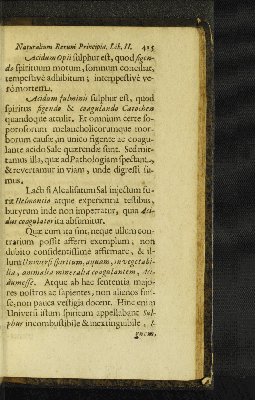 Naturalium Rerum Principia, Lib. II. 415
Acidum Opii sulphur est, quod figen-
do spirituum motum, somnum conciliat,
tempestivè adhibitum; intempestivè ve-
rò mortem.
Acidum fulminis sulphur est, quod
spiritus figendo & coagulando Catochen
quandoque attulit. Et omnium certe so-
porosorum melancholicorumque mor-
borum causæ, in unico figente ac coagu-
lante acido Sale quærendæ sunt. Sed mit-
tamus illa, quæ ad Pathologiam spectant,
& revertamur in viam, unde digressi su-
mus.
Lacti si Alcalisatum Sal injectum fu-
rit Helmontio atque experientia testibus,
butyrum inde non impetratur, quia Aci-
dus coagulator ita absumitur.
Quæ cum ita sint, neque ullum con-
trarium possit afferri exemplum, non
dubito confidentissimè affirmare, & il-
lum Universi spiritum, aquam, in vegetabi-
lia, animalia mineralia coagulantem, Aci-
dum esse. Atque ab hac sententia majo-
res nostros ac sapientes, non alienos fuis-
se, non pauca vestigia docent. Hinc enim
Universi istum spiritum appellabant Sul-
phur incombustibile & inextinguibile,
gnem,